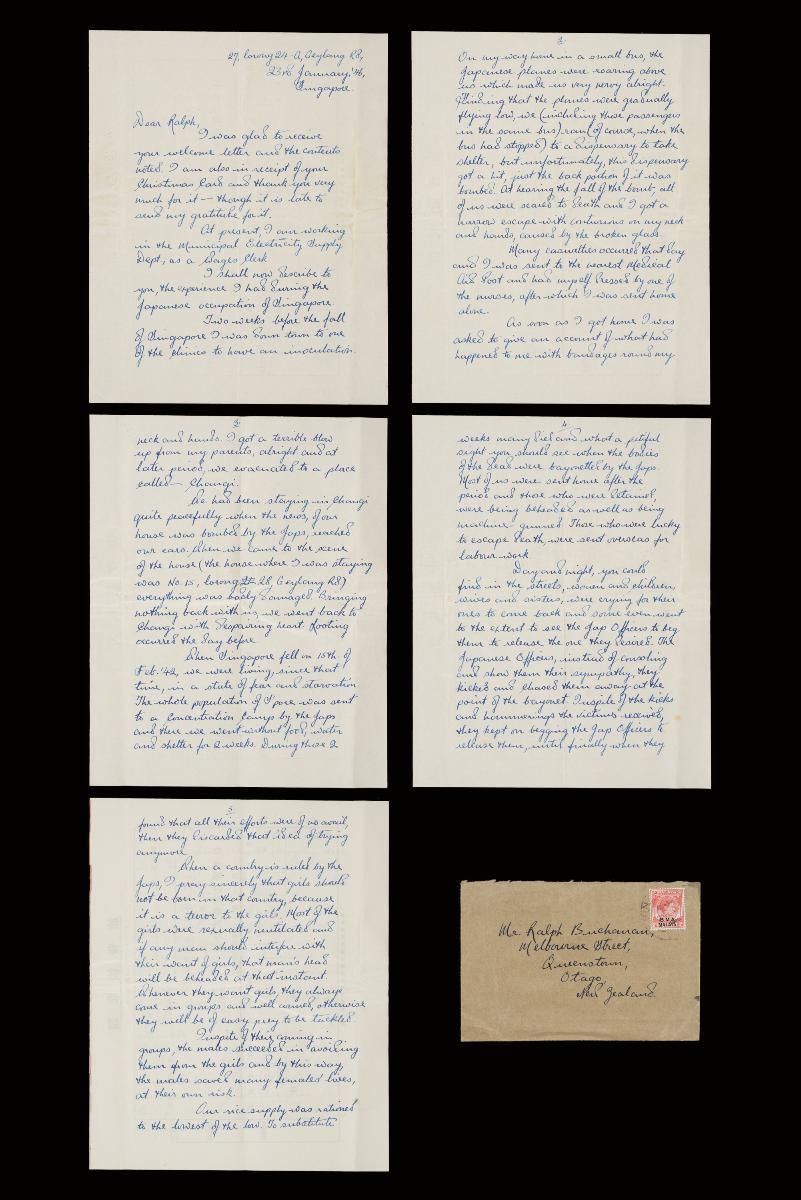 27, Lorong 24-A, Geylang Rd,
23rd January, '46,
Singapore.
Dear Ralph,
I was glad to receive
your welcome letter and the contents
noted. I am also in receipt of your
Christmas Card and thank you very
much for it — though it is late to
send my gratitude for it.
At present, I am working
in the Municipal Electricity Supply
Dept, as a Wages Clerk
I shall now describe to
you, the experience I had during the
Japanese occupation of Singapore.
Two weeks before the fall
of Singapore I was down town to one
of the clinics to have an inoculation.
2
On my way home in a small bus, the
Japanese planes were roaring above
us which made us very nervy alright.
Thinking that the planes were gradually
flying low, we (including those passengers
in the same bus) ran (of course, when the
bus had stopped) to a dispensary to take
shelter, but unfortunately, this dispensary
got a hit, just the back portion of it was
bombed. At hearing the fall of the bomb, all
of us were scared to death and I got a
narrow escape with contusions on my neck
and hands, caused by the broken glass.
Many casualties occurred that day
and I was sent to the nearest Medical
Aid Post and had myself dressed by one of
the nurses, after which I was sent home
alone.
As soon as I got home I was
asked to give an account of what had
happened to me with bandages round my
3
neck and hands. I got a terrible blow
up from my parents, alright and at
later period, we evacuated to a place
called — Changi.
We had been staying in Changi
quite peacefully when the news, of our
house was bombed by the Japs, reached
our ears. When we came to the scene
of the house (the house where I was staying
was No. 15, Lorong 28, Geylang Rd)
everything was badly damaged. Bringing
nothing back with us, we went back to
Changi with despairing heart. Looting
occurred the day before.
When Singapore fell on 15th. of
Feb. '42, we were living, since that
time, in a state of fear and starvation.
The whole population of S'pore was sent
to a Concentration Camps by the Japs
and there we went without food, water
and shelter for 2 weeks. During those 2
4
weeks many died and what a pitiful
sight you should see when the bodies
of the dead were bayonetted by the Japs.
Most of us were sent home after the
period and those who were detained,
were being beheaded as well as being
machine-gunned. Those who were lucky
to escape death, were sent overseas for
labour work
Day and night, you could
find in the streets, women and children,
wives and sisters, were crying for their
ones to come back and some even went
to the extent to see the Jap Officers to beg
them to release the one they desired. The
Japanese Officers, instead of consoling
and show them their sympathy, they
kicked and chased them away at the
point of the bayonet. Inspite of the kicks
and hammerings the victims received,
they kept on begging the Jap Officers to
release them, until finally when they
5
found that all their efforts were of no avail,
then they discarded that idea of trying
anymore
When a country is ruled by the
Japs, I pray sincerely that girls should
not be born in that country, because
it is a terror to the girls. Most of the
girls were sexually mentilated and
if any man should interfere with
their want of girls, that man's head
will be beheaded at that instant.
Whenever they want girls, they always
come in groups and well armed, otherwise
they will be of easy prey to be tackled.
Inspite of their coming in
groups, the males succeeded in avoiding
them from the girls and by this way,
the males saved many females lives,
at their own risk.
Our rice supply was rationed
to the lowest of the low. To substitute
B M A
MALAYA
Mr. Ralph Buchanan,
Melbourne Street,
Queenstown,
Otago,
New Zealand.